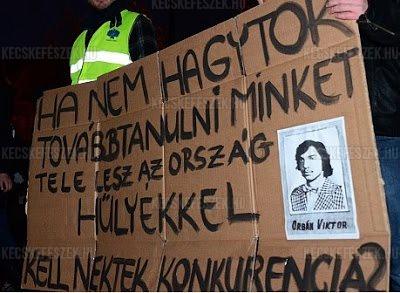 HA NEM HAGYTOK
TOVÁBBTANULNI MINKET
TELE LESZ AZ ORSZÁG
HÜLYÉKKEL
ORBÁN VIKTOR
KELL NEKTEK KONKURENCIA?
KECSKEFÉSZEK.HU